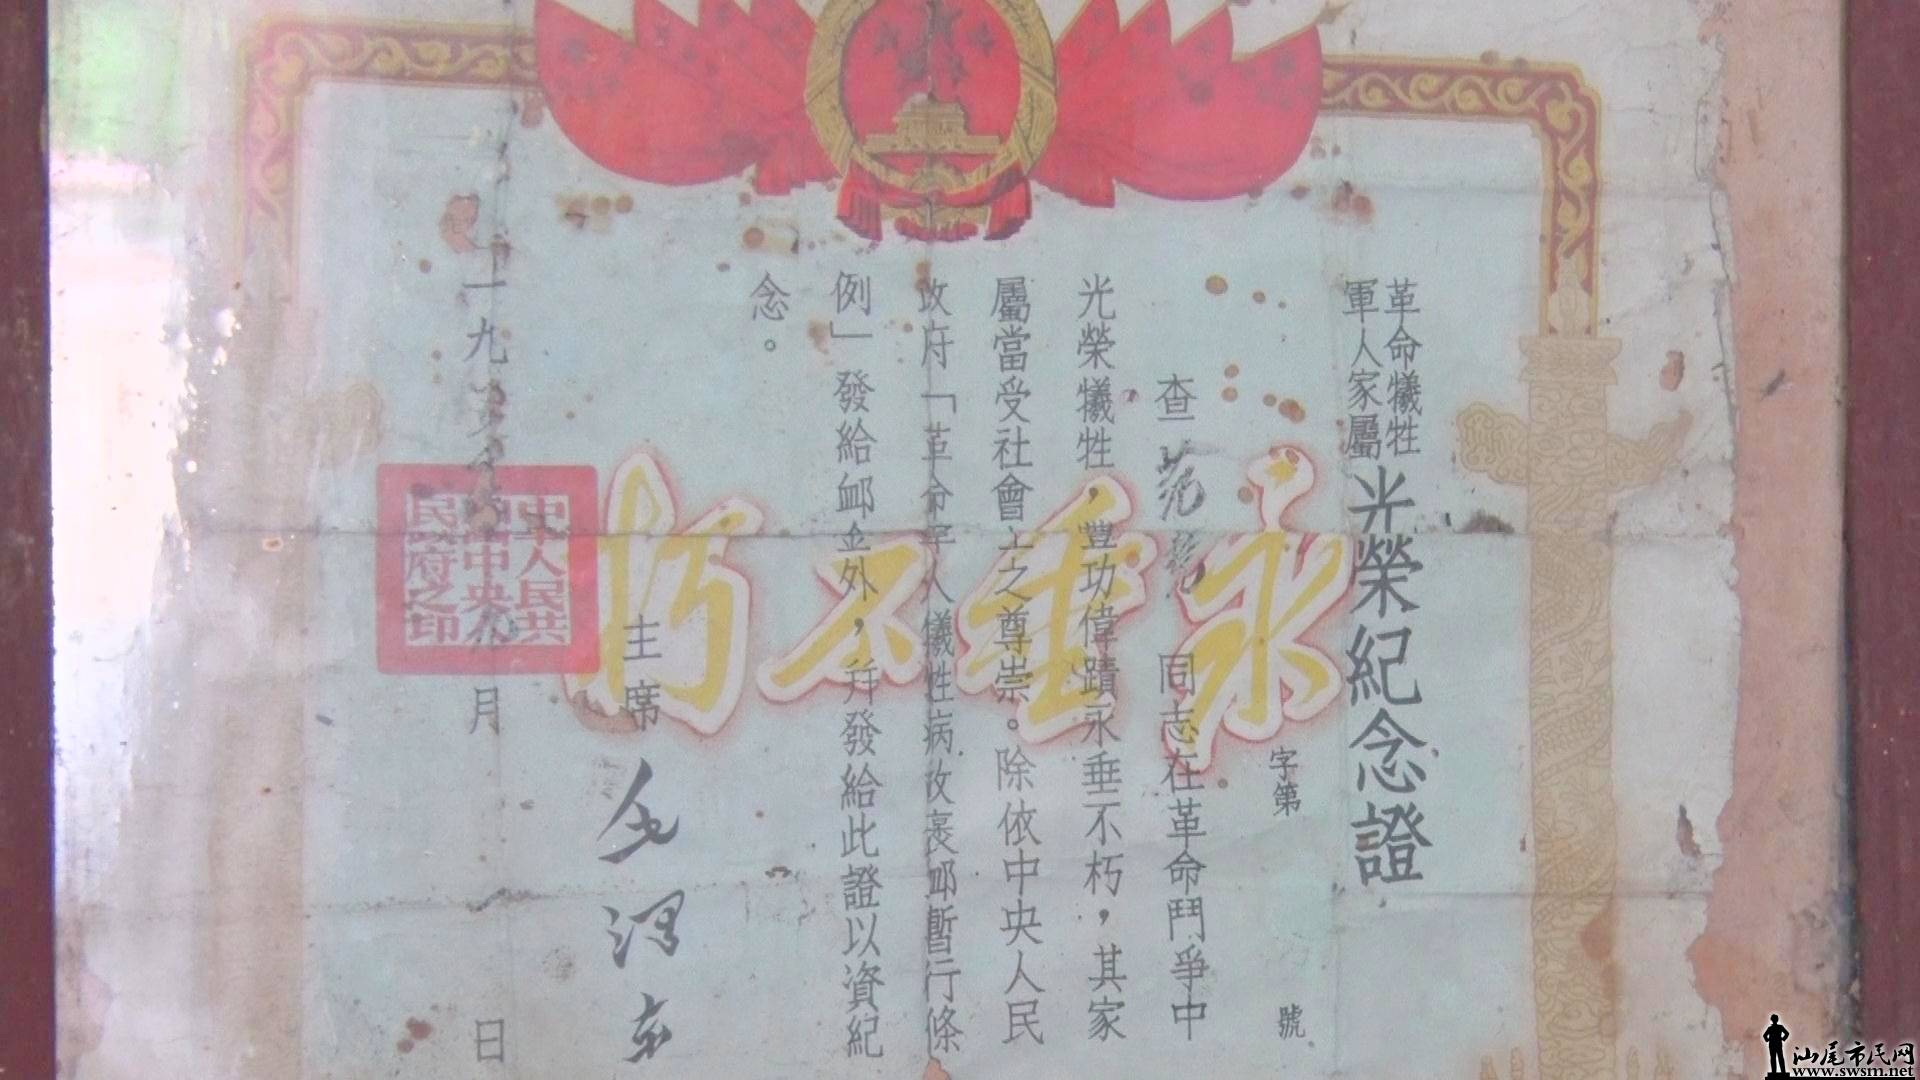 革命犧牲
軍人家屬
光榮紀念證
字第 號
查 同志在革命鬥爭中
光榮犧牲，豐功偉蹟永垂不朽，其家
屬當受社會上之尊崇。除依中央人民
政府「革命軍人犧牲病故褒卹暫行條
例」發給卹金外，幷發給此證以資紀
念。
永垂不朽
主席 毛澤東
一九五 月 日
中華人民共
和國中央人
民政府之印
汕尾市民网
www.swsm.net